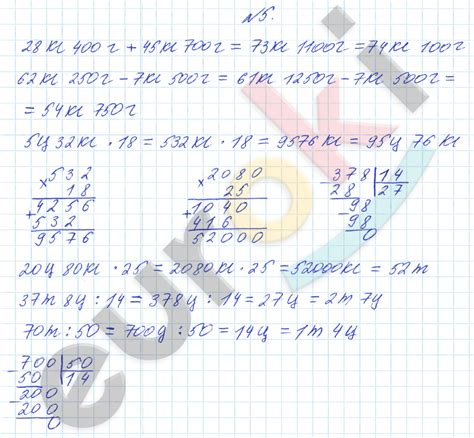 №5.
28 кг 400 г + 45 кг 700 г = 73 кг 1100 г = 74 кг 100 г
62 кг 250 г - 7 кг 500 г = 61 кг 1250 г - 7 кг 500 г =
= 54 кг 750 г
5 ц 32 кг · 18 = 532 кг · 18 = 9576 кг = 95 ц 76 кг
× 532
18
+ 4256
532
9576
× 2080
25
+ 1040
416
52000
- 378 | 14
28 | 27
- 98
98
0
20 ц 80 кг · 25 = 2080 кг · 25 = 52000 кг = 52 т
37 т 8 ц : 14 = 378 ц : 14 = 27 ц = 2 т 7 ц
70 т : 50 = 700 ц : 50 = 14 ц = 1 т 4 ц
- 700 | 50
50 | 14
- 200
- 200
0
euroki